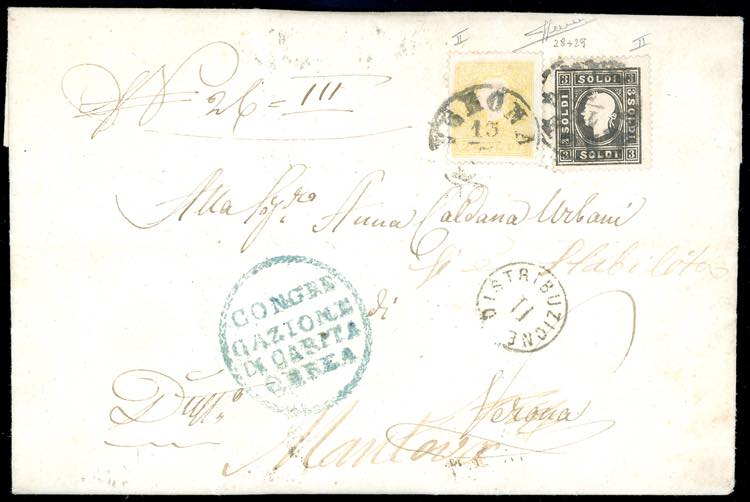 II 28+29 II
N° 26 = III
VERONA
13
3 SOLDI 3
3 SOLDI
3 SOLDI
3 SOLDI 3
Alla Sigra Anna Caldana Urbani
DISTRIBUZIONE
II
CONGRE
GAZIONE
DI CARITA
CEREA
di
Verona
Mantova